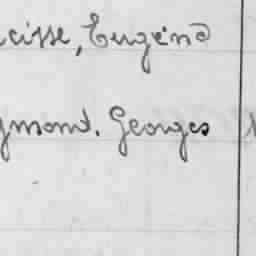 cisse, Eugène
gmond. Georges